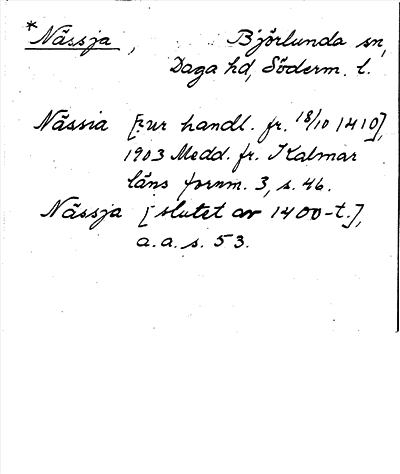 *Nässja, Björlunda sn,
Daga hd, Söderm. l.
Nässia [ur handl. fr. 18/10 1410],
1903 Medd. fr. Kalmar
läns fornm. 3, s. 46.
Nässja [slutet av 1400-t.],
a.a. s. 53.